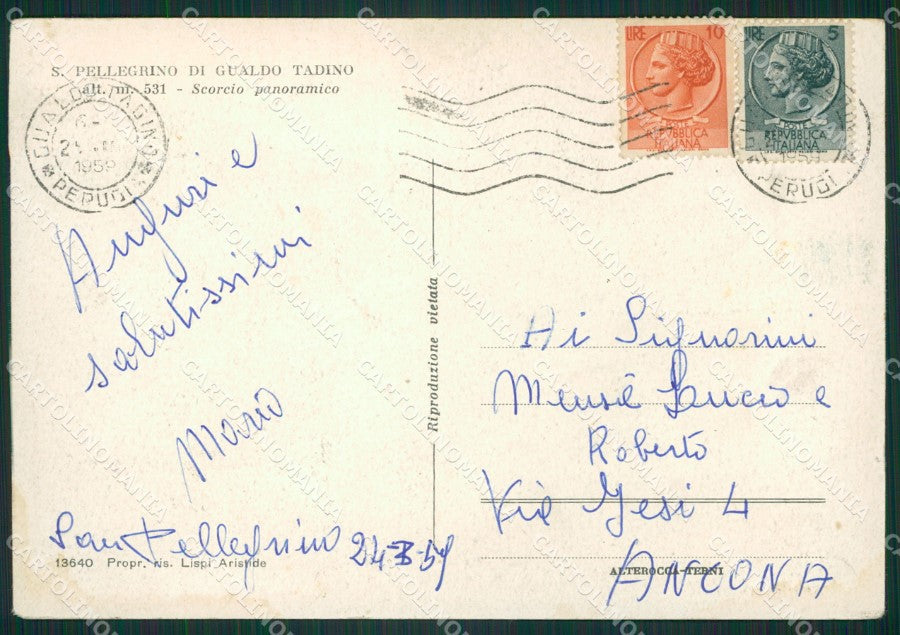 S. PELLEGRINO DI GUALDO TADINO
alt. m. 531 - Scorcio panoramico
GUALDO TADINO
1959
PERUGI
LIRE 10
POSTE
REPVBBLICA
ITALIANA
LIRE 5
POSTE
REPVBBLICA
ITALIANA
1959
PERUGI
Auguri e
salutissimi
Mario
San Pellegrino 24-8-59
13640 Propr. ris. Lispi Aristide
Riproduzione vietata
Ai Signorini
Mensà Lucio e
Roberto
Via Jesi 4
ALTEROCCA-TERNI
ANCONA
CARTOLINOMANIA